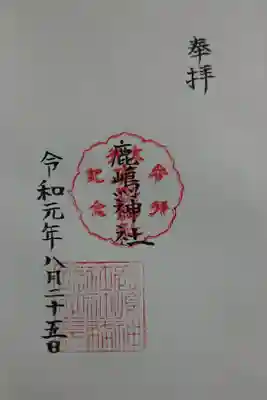 奉拝
鹿嶋神社
参拝
記念
令和元年八月二十五日